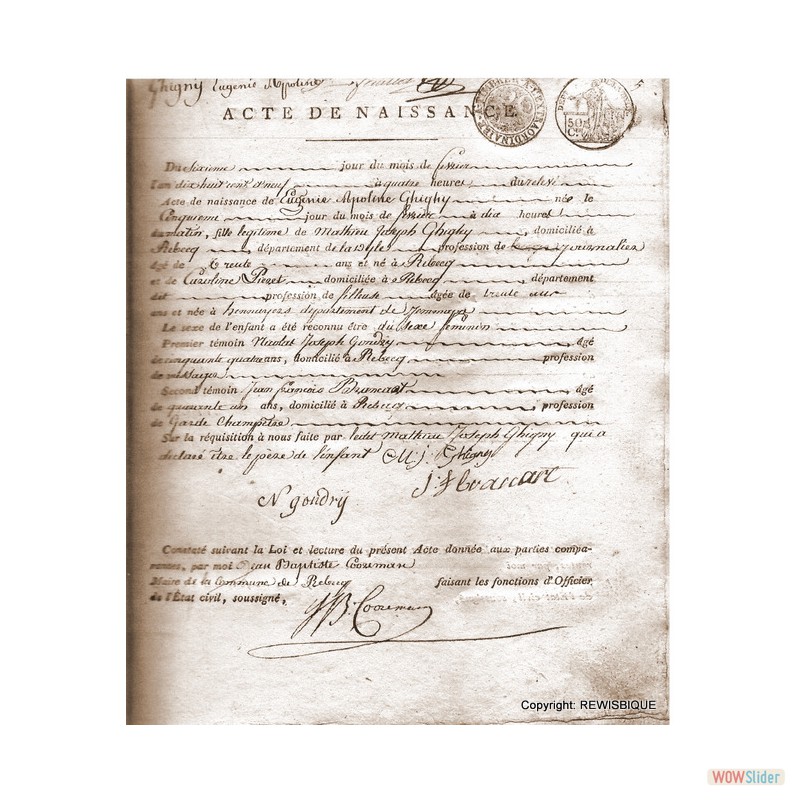 Ghigny Eugenie Apoline
ACTE DE NAISSANCE
50 C.
5
Du sixieme jour du mois de fevrier
l'an dix huit cent et neuf à quatre heures du
Acte de naissance de Eugenie Apoline Ghighy née le
Cinquieme jour du mois de fevrier à dix heures
du matin, fille legitime de Mathieu Joseph Ghighy, domicilié à
Rebecq, département de la Dyle profession de Journalier
âgé de trente ans et né à Rebecq
et de Caroline Pieret domiciliée à Rebecq, département
dit profession de fileuse âgée de trente
ans et née à hennuyers département de Jemmappe
Le sexe de l'enfant a été reconnu être du sexe feminin
Premier témoin Joseph Gondry âgé
de cinquante quatre ans, domicilié à Rebecq profession
de messager
Second témoin Jean françois âgé
de quarante un ans, domicilié à Rebecq, profession
de Garde Champetre
Sur la réquisition à nous faite par ledit Mathieu Joseph Ghigny qui a
declaré être le père de l'enfant M. j. Ghigny
N gondrÿ
Constaté suivant la Loi et lecture du présent Acte donnée aux parties compa-
rantes, par moi Jean Baptiste Cooreman
Maire de la Commune de Rebecq faisant les fonctions d'Officier
de l'État civil, soussigné,
JB. Cooreman
Copyright: REWISBIQUE
WOWSlider